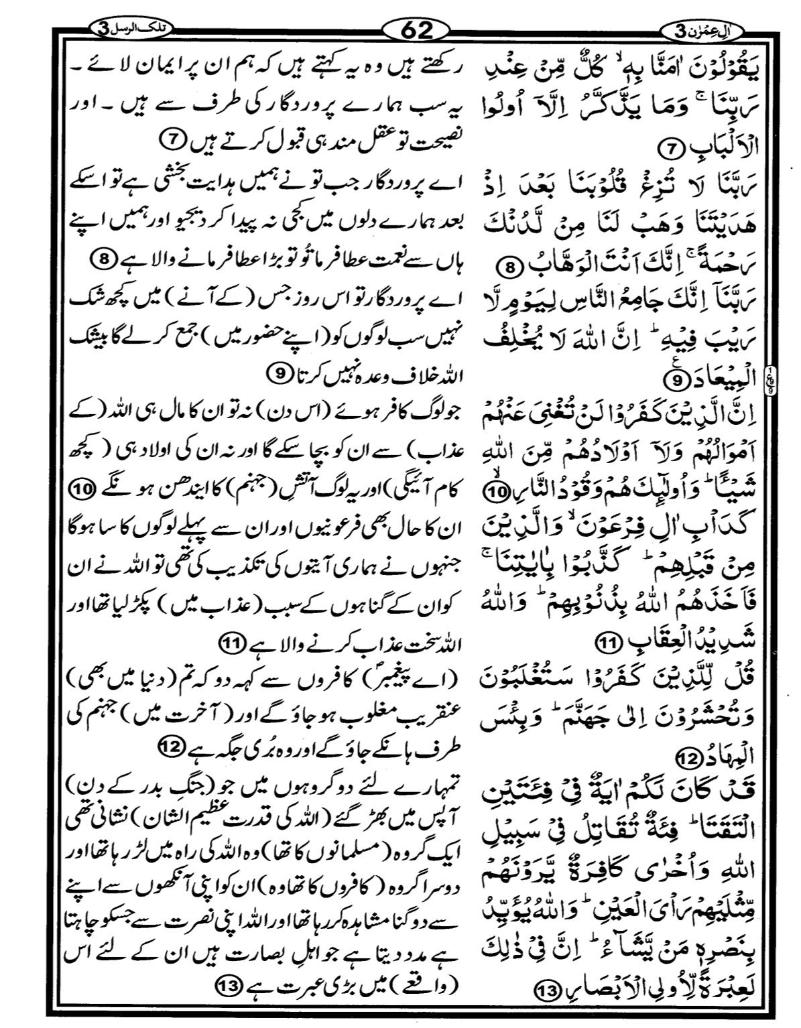 اٰلِ عِمْرٰن 3
62
تلک الرسل 3
يَقُوْلُوْنَ اٰمَنَّا بِهٖ ۙ كُلٌّ مِّنْ عِنْدِ
رَبِّنَا ۚ وَمَا يَذَّكَّرُ اِلَّاۤ اُولُوا
الْاَلْبَابِ 7
رَبَّنَا لَا تُزِغْ قُلُوْبَنَا بَعْدَ اِذْ
هَدَيْتَنَا وَهَبْ لَنَا مِنْ لَّدُنْكَ
رَحْمَةً ۚ اِنَّكَ اَنْتَ الْوَهَّابُ 8
رَبَّنَاۤ اِنَّكَ جَامِعُ النَّاسِ لِيَوْمٍ لَّا
رَيْبَ فِيْهِ ؕ اِنَّ اللّٰهَ لَا يُخْلِفُ
الْمِيْعَادَ ع 9
اِنَّ الَّذِيْنَ كَفَرُوْا لَنْ تُغْنِىَ عَنْهُمْ
اَمْوَالُهُمْ وَلَاۤ اَوْلَادُهُمْ مِّنَ اللّٰهِ
شَيْـًٔا ؕ وَاُولٰٓئِكَ هُمْ وَقُوْدُ النَّارِ ۙ 10
كَدَاْبِ اٰلِ فِرْعَوْنَ ۙ وَالَّذِيْنَ
مِنْ قَبْلِهِمْ ؕ كَذَّبُوْا بِاٰيٰتِنَا ۚ
فَاَخَذَهُمُ اللّٰهُ بِذُنُوْبِهِمْ ؕ وَاللّٰهُ
شَدِيْدُ الْعِقَابِ 11
قُلْ لِّلَّذِيْنَ كَفَرُوْا سَتُغْلَبُوْنَ
وَتُحْشَرُوْنَ اِلٰى جَهَنَّمَ ؕ وَبِئْسَ
الْمِهَادُ 12
قَدْ كَانَ لَكُمْ اٰيَةٌ فِىْ فِئَتَيْنِ
الْتَقَتَا ؕ فِئَةٌ تُقَاتِلُ فِىْ سَبِيْلِ
اللّٰهِ وَاُخْرٰى كَافِرَةٌ يَّرَوْنَهُمْ
مِّثْلَيْهِمْ رَاْىَ الْعَيْنِ ؕ وَاللّٰهُ يُؤَيِّدُ
بِنَصْرِهٖ مَنْ يَّشَآءُ ؕ اِنَّ فِىْ ذٰلِكَ
لَعِبْرَةً لِّاُولِى الْاَبْصَارِ 13
رکھتے ہیں وہ یہ کہتے ہیں کہ ہم ان پر ایمان لائے ۔
یہ سب ہمارے پروردگار کی طرف سے ہیں ۔ اور
نصیحت تو عقل مند ہی قبول کرتے ہیں 7
اے پروردگار جب تو نے ہمیں ہدایت بخشی ہے تو اسکے
بعد ہمارے دلوں میں کجی نہ پیدا کر دیجیو اور ہمیں اپنے
ہاں سے نعمت عطا فرما تُو تو بڑا عطا فرمانے والا ہے 8
اے پروردگار تو اس روز جس (کے آنے) میں کچھ شک
نہیں سب لوگوں کو (اپنے حضور میں) جمع کر لے گا بیشک
اللہ خلاف وعدہ نہیں کرتا 9
جو لوگ کافر ہوئے (اس دن) نہ تو ان کا مال ہی اللہ (کے
عذاب) سے ان کو بچا سکے گا اور نہ ان کی اولاد ہی (کچھ
کام آئیگی) اور یہ لوگ آتشِ (جہنم) کا ایندھن ہونگے 10
ان کا حال بھی فرعونیوں اور ان سے پہلے لوگوں کا سا ہوگا
جنہوں نے ہماری آیتوں کی تکذیب کی تھی تو اللہ نے ان
کو ان کے گناہوں کے سبب (عذاب میں) پکڑ لیا تھا اور
اللہ سخت عذاب کرنے والا ہے 11
(اے پیغمبرؐ) کافروں سے کہہ دو کہ تم (دنیا میں بھی)
عنقریب مغلوب ہو جاؤ گے اور (آخرت میں) جہنم کی
طرف ہانکے جاؤ گے اور وہ بُری جگہ ہے 12
تمہارے لئے دو گروہوں میں جو (جنگِ بدر کے دن)
آپس میں بھڑ گئے (اللہ کی قدرت عظیم الشان) نشانی تھی
ایک گروہ (مسلمانوں کا تھا) وہ اللہ کی راہ میں لڑ رہا تھا اور
دوسرا گروہ (کافروں کا تھا وہ) ان کو اپنی آنکھوں سے اپنے
سے دوگنا مشاہدہ کر رہا تھا اور اللہ اپنی نصرت سے جسکو چاہتا
ہے مدد دیتا ہے جو اہلِ بصارت ہیں ان کے لئے اس
(واقعے) میں بڑی عبرت ہے 13